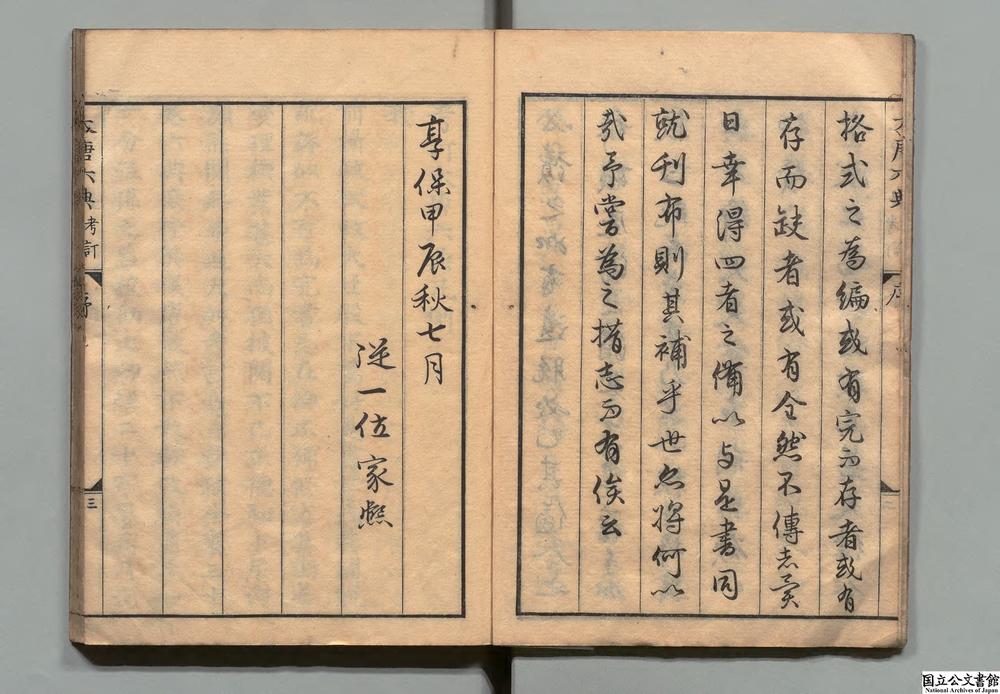 大唐六典
序
格式之為編或有完而存者或有
存而缺者或有全然不傳者異
日幸得四者之備以與是書同
就刊布則其補乎世亦將何如
哉予嘗為之措志而有俟云
享保甲辰秋七月
從一位家熈
大唐六典考訂 序 三
国立公文書館
National Archives of Japan